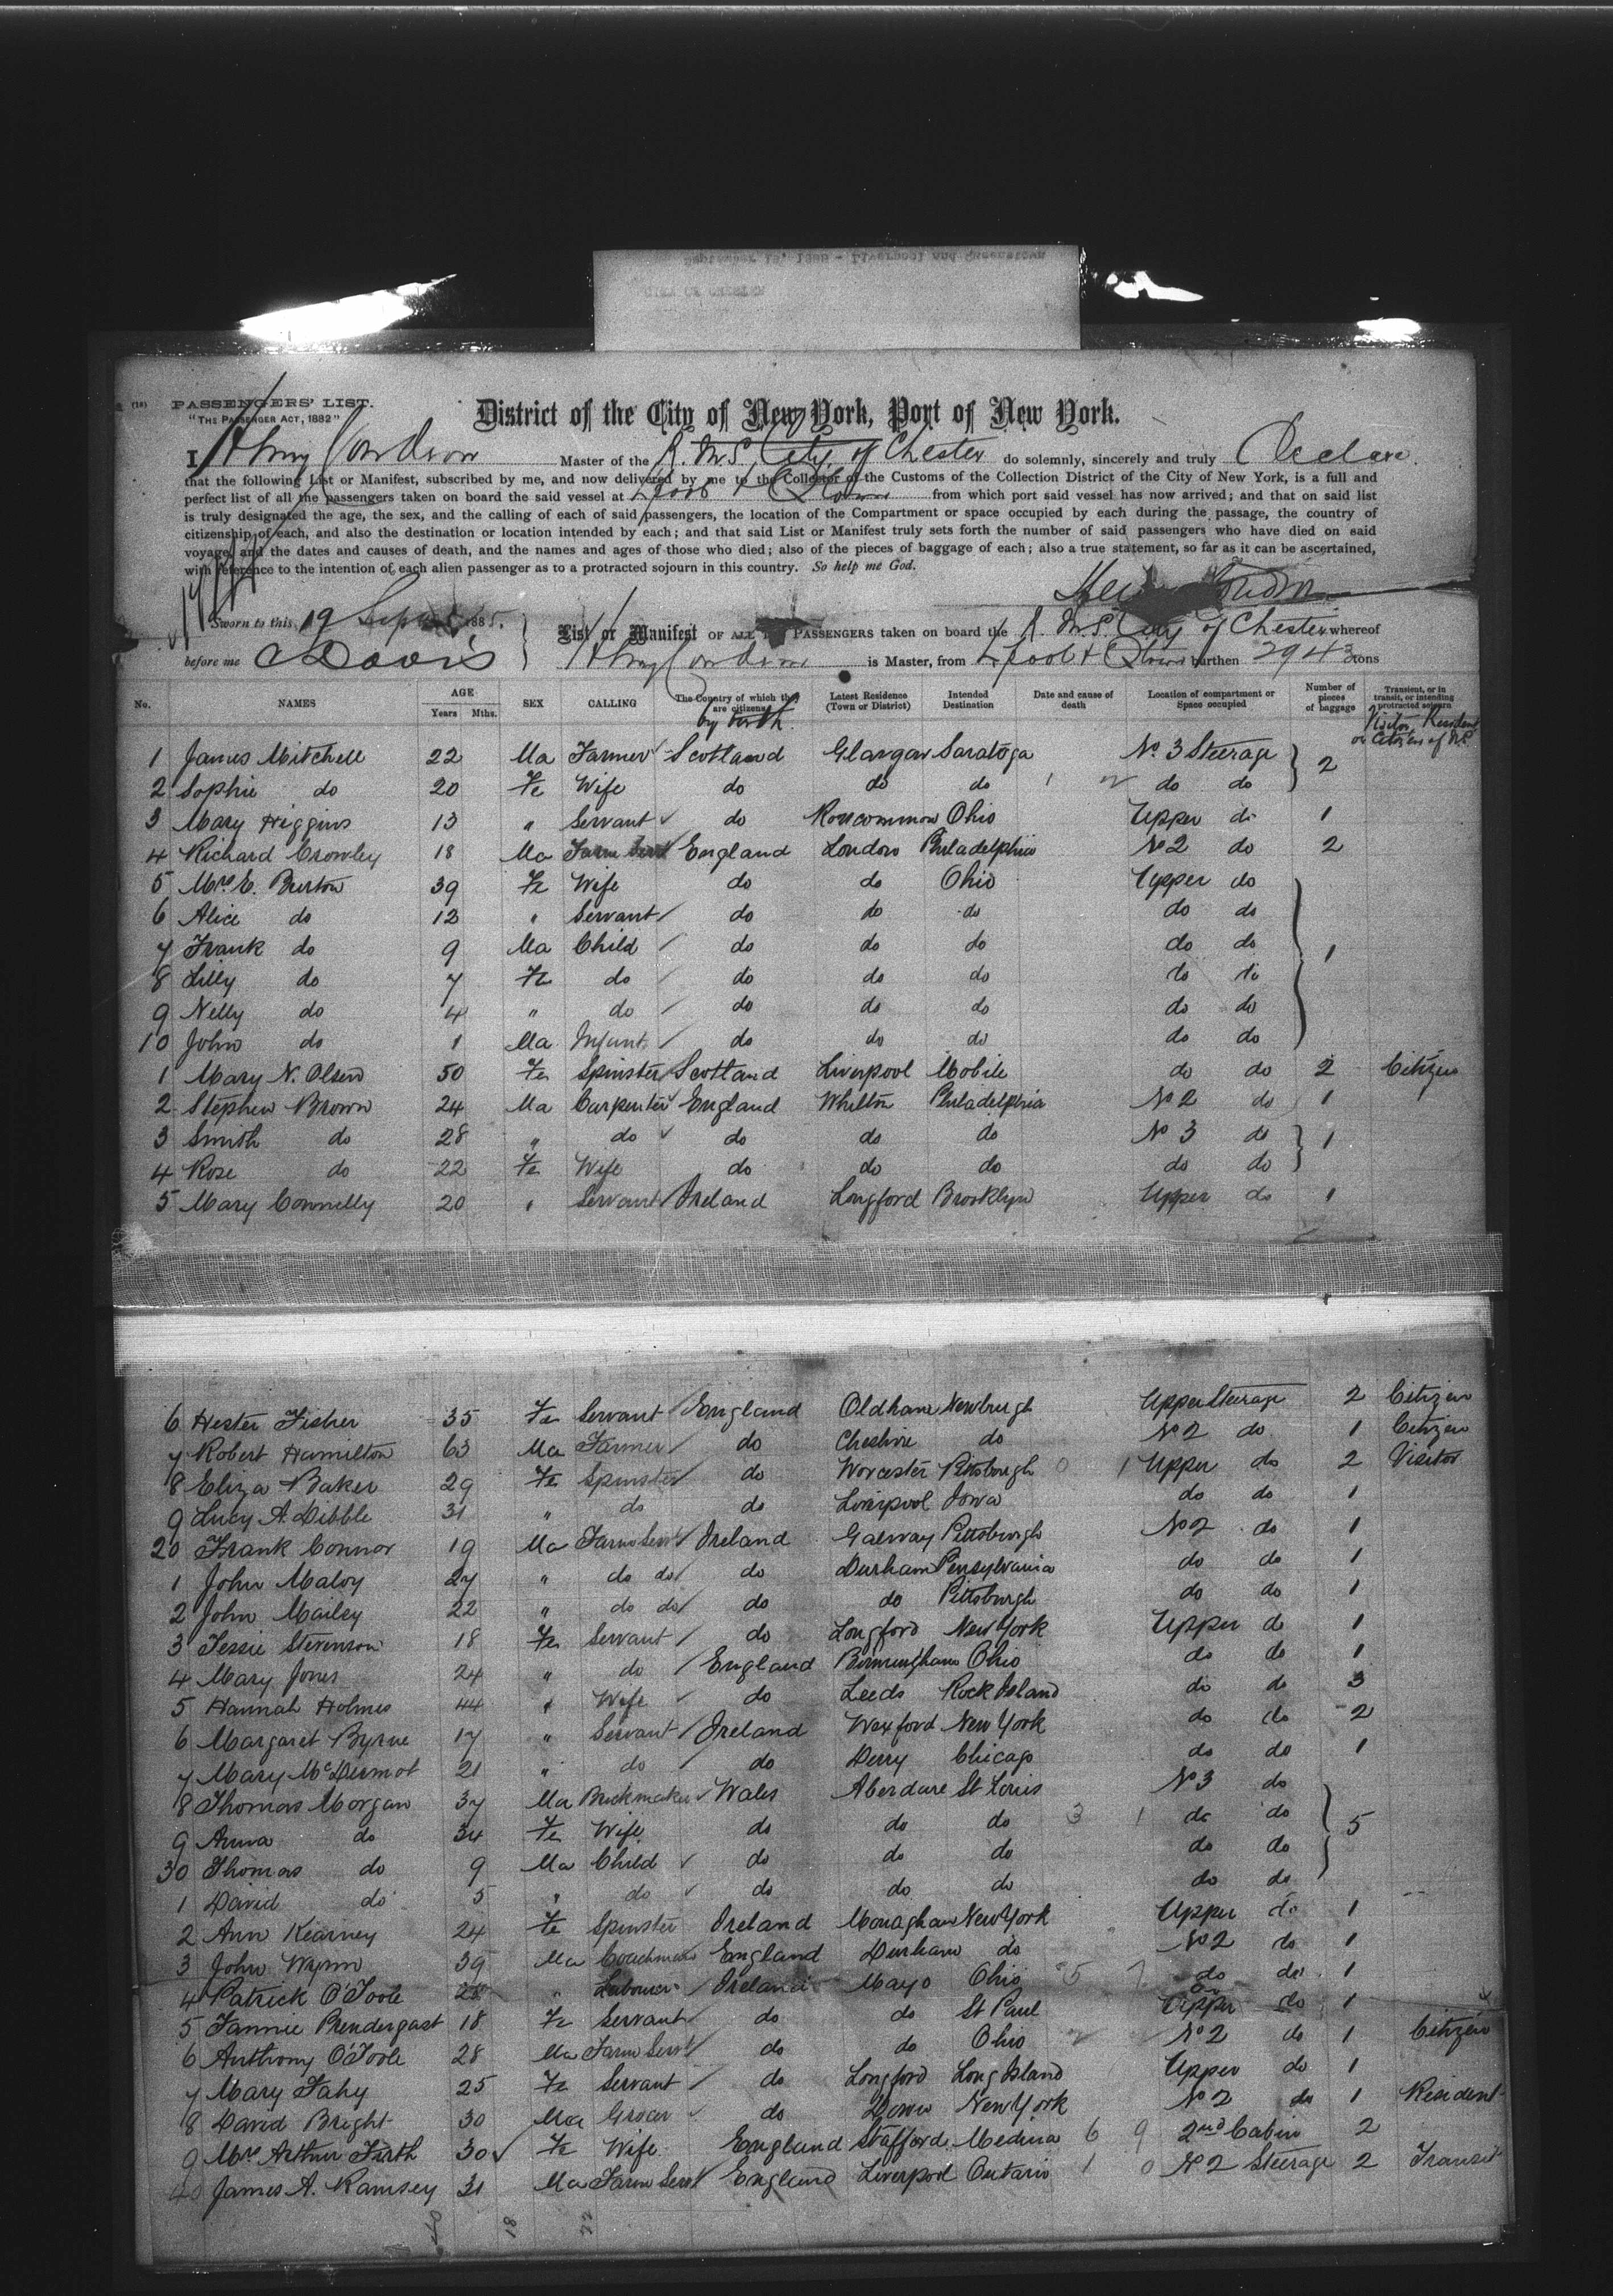 (18) PASSENGERS' LIST.
"THE PASSENGER ACT, 1882"
District of the City of New York, Port of New York.
I, Master of the R.M.S. City of Chester do solemnly, sincerely and truly Declare
that the following List or Manifest, subscribed by me, and now delivered by me to the Collector of the Customs of the Collection District of the City of New York, is a full and
perfect list of all the passengers taken on board the said vessel at L'pool + Q'town from which port said vessel has now arrived; and that on said list
is truly designated the age, the sex, and the calling of each of said passengers, the location of the Compartment or space occupied by each during the passage, the country of
citizenship of each, and also the destination or location intended by each; and that said List or Manifest truly sets forth the number of said passengers who have died on said
voyage, and the dates and causes of death, and the names and ages of those who died; also of the pieces of baggage of each; also a true statement, so far as it can be ascertained,
with reference to the intention of each alien passenger as to a protracted sojourn in this country. So help me God.
Sworn to this 19 Sept 1885,
before me Davis
List or Manifest OF ALL THE PASSENGERS taken on board the R.M.S. City of Chester whereof
is Master, from L'pool + Q'town burthen 2943 tons
No. NAMES AGE Years Mths. SEX CALLING The Country of which they are citizens by birth Latest Residence (Town or District) Intended Destination Date and cause of death Location of compartment or Space occupied Number of pieces of baggage Transient, or in transit, or intending protracted sojourn Visitor, Resident or Citizen of
1 James Mitchell 22 Ma Farmer Scotland Glasgow Saratoga No. 3 Steerage 2
2 Sophie do 20 Fe Wife do do do do do
3 Mary Higgins 13 " Servant do Roscommon Ohio Upper do 1
4 Richard Crowley 18 Ma Farm Servt England London Philadelphia No 2 do 2
5 Mrs E. Burton 39 Fe Wife do do Ohio Upper do
6 Alice do 12 " Servant do do do do do
7 Frank do 9 Ma Child do do do do do 1
8 Lilly do 7 Fe do do do do do do
9 Nelly do 4 " do do do do do do
10 John do 1 Ma Infant do do do do do
1 Mary N. Olsen 50 Fe Spinster Scotland Liverpool Mobile do do 2 Citizen
2 Stephen Brown 24 Ma Carpenter England Whilton Philadelphia No 2 do 1
3 Smith do 28 " do do do do No 3 do 1
4 Rose do 22 Fe Wife do do do do do
5 Mary Connelly 20 " Servant Ireland Longford Brooklyn Upper do 1
6 Hester Fisher 35 Fe Servant England Oldham Newburgh Upper Steerage 2 Citizen
7 Robert Hamilton 63 Ma Farmer do Cheshire do No 2 do 1 Citizen
8 Eliza Baker 29 Fe Spinster do Worcester Pittsburgh 0 1 Upper do 2 Visitor
9 Lucy A. Dibble 31 " do do Liverpool Iowa do do 1
20 Frank Connor 19 Ma Farm Servt Ireland Galway Pittsburgh No 2 do 1
1 John Maloy 27 " do do do Durham Pensylvania do do 1
2 John Mailey 22 " do do do do Pittsburgh do do 1
3 Jessie Stevenson 18 Fe Servant do Longford New York Upper do 1
4 Mary Jones 24 " do England Birmingham Ohio do do 1
5 Hannah Holmes 44 " Wife do Leeds Rock Island do do 3
6 Margaret Byrne 17 " Servant Ireland Wexford New York do do 2
7 Mary McDermot 21 " do do Derry Chicago do do 1
8 Thomas Morgan 37 Ma Brickmaker Wales Aberdare St Louis No 3 do
9 Anna do 34 Fe Wife do do do 3 1 do do 5
30 Thomas do 9 Ma Child do do do do do
1 David do 5 " do do do do do do
2 Ann Kearney 24 Fe Spinster Ireland Monaghan New York Upper do 1
3 John Wynn 39 Ma Coachman England Durham do No 2 do 1
4 Patrick O'Toole 28 " Labourer Ireland Mayo Ohio 5 do do 1
5 Fannie Prendergast 18 Fe Servant do do St Paul Upper do 1
6 Anthony O'Toole 28 Ma Farm Servt do do Ohio No 2 do 1 Citizen
7 Mary Fahy 25 Fe Servant do Longford Long Island Upper do 1
8 David Bright 30 Ma Grocer do Down New York No 2 do 1 Resident
9 Mrs Arthur Firth 30 Fe Wife England Stafford Medina 6 9 2nd Cabin 2
40 James A. Ramsey 31 Ma Farm Servt England Liverpool Ontario 1 0 No 2 Steerage 2 Transit
18 22